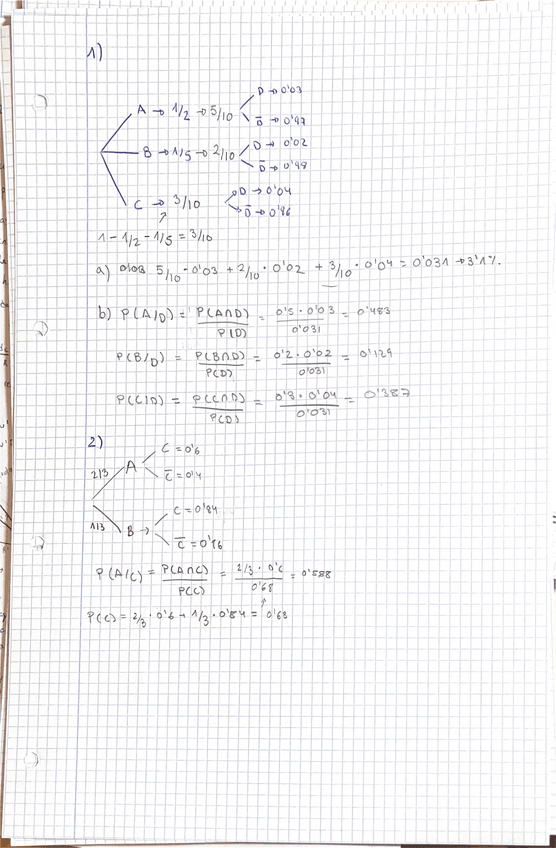 1)
D → 0'03
A → 1/2 → 5/10
D̅ → 0'97
D → 0'02
B → 1/5 → 2/10
D̅ → 0'98
D → 0'04
C → 3/10
D̅ → 0'96
1 - 1/2 - 1/5 = 3/10
a) 5/10 · 0'03 + 2/10 · 0'02 + 3/10 · 0'04 = 0'031 → 3'1%.
b) P(A/D) = P(A∩D)/P(D) = 0'5 · 0'03/0'031 = 0'483
P(B/D) = P(B∩D)/P(D) = 0'2 · 0'02/0'031 = 0'129
P(C/D) = P(C∩D)/P(D) = 0'3 · 0'04/0'031 = 0'387
2)
C = 0'6
2/3 A
C̅ = 0'4
C = 0'84
1/3 B →
C̅ = 0'16
P(A/C) = P(A∩C)/P(C) = 2/3 · 0'6/0'68 = 0'588
P(C) = 2/3 · 0'6 + 1/3 · 0'84 = 0'68